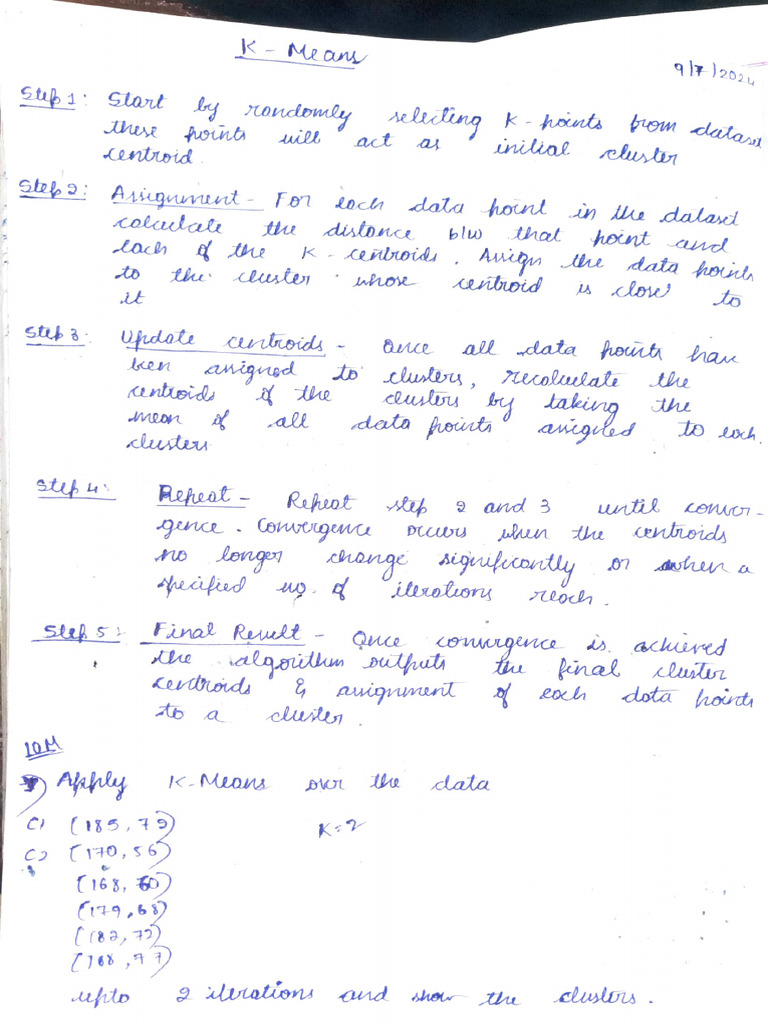 K - Means
9/7/2024
Step 1: Start by randomly selecting K-points from dataset
these points will act as initial cluster
centroid.
Step 2: Assignment - For each data point in the dataset
calculate the distance b/w that point and
each of the K-centroids. Assign the data points
to the cluster whose centroid is close to
it
Step 3: Update centroids - Once all data points have
been assigned to clusters, recalculate the
centroids of the clusters by taking the
mean of all data points assigned to each
clusters
Step 4: Repeat - Repeat step 2 and 3 until conver-
gence. Convergence occurs when the centroids
no longer change significantly or when a
specified no. of iterations reach.
Step 5: Final Result - Once convergence is achieved
the algorithm outputs the final cluster
centroids & assignment of each data points
to a cluster.
10M
Apply K-Means over the data
C1 (185, 72) K=2
C2 (170, 56)
(168, 60)
(179, 68)
(182, 72)
(188, 77)
upto 2 iterations and show the clusters.